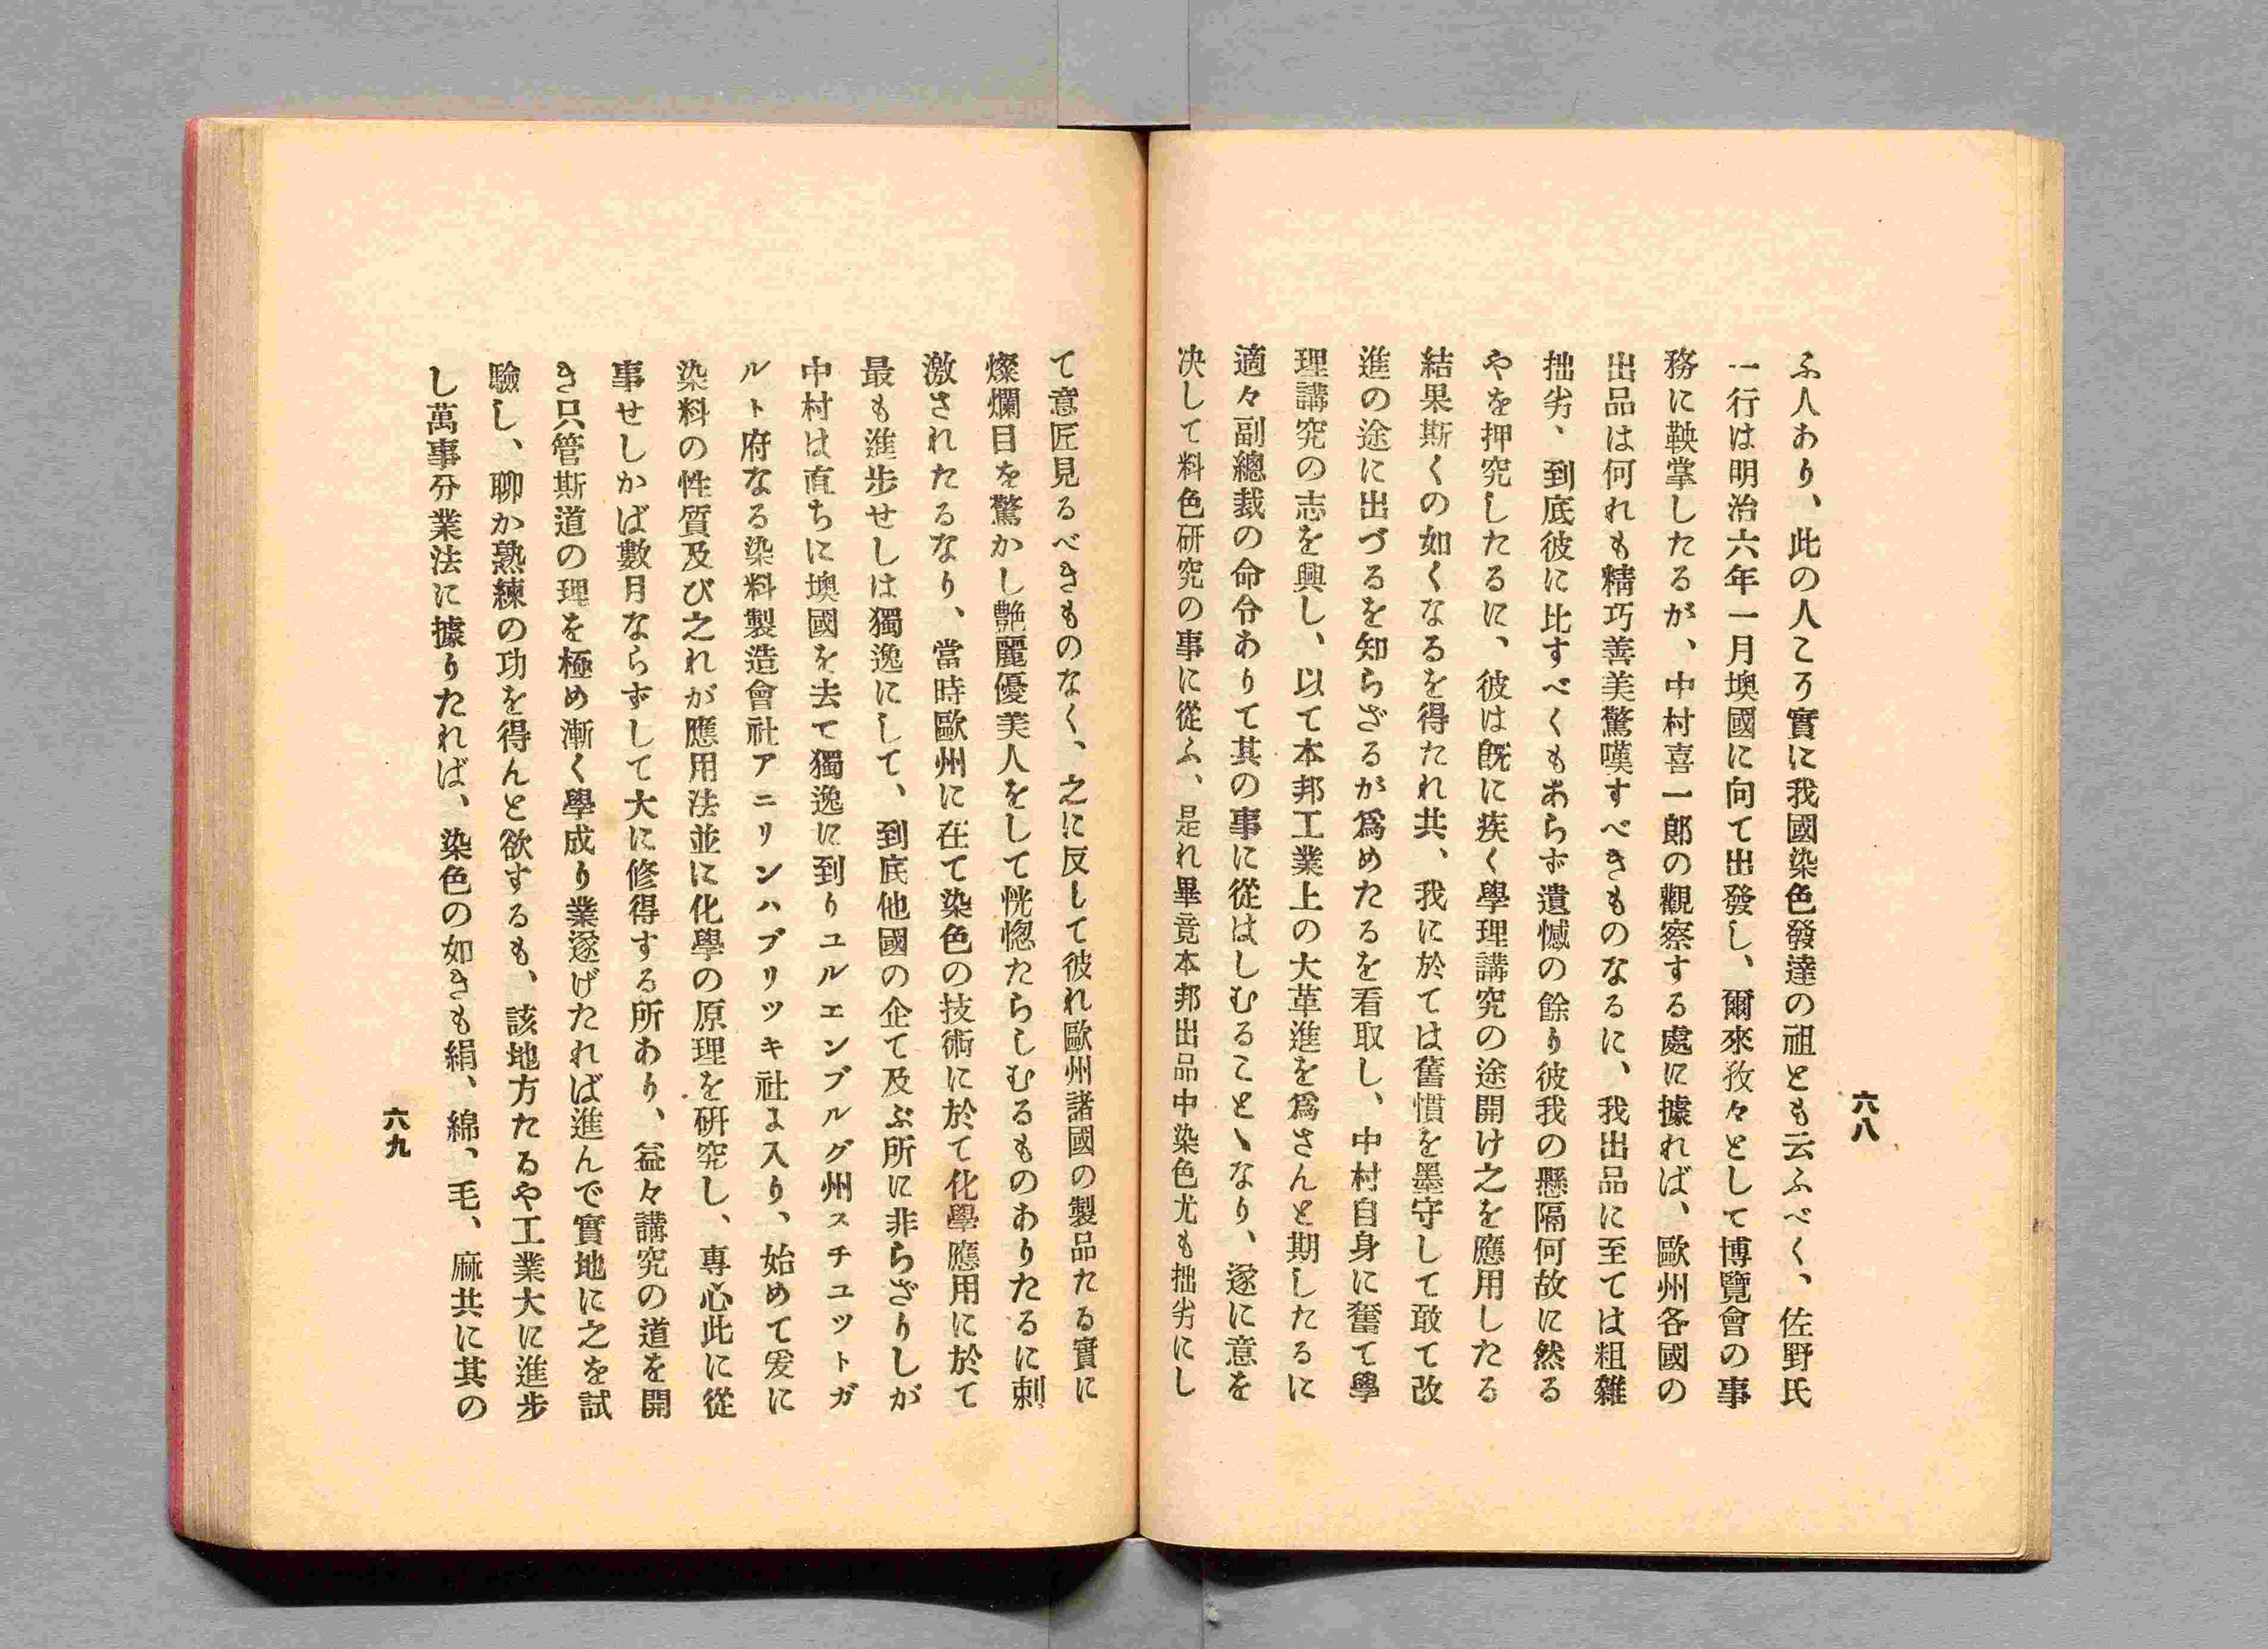 六八
ふ人あり、此の人こう實に我國染色發達の祖とも云ふべく、佐野氏
一行は明治六年一月墺國に向て出發し、爾來孜々として博覽會の事
務に鞅掌したるが、中村喜一郎の觀察する處に據れば、歐州各國の
出品は何れも精巧善美驚嘆すべきものなるに、我出品に至ては粗雜
拙劣、到底彼に比すべくもあらず遺憾の餘り彼我の懸隔何故に然る
やを押究したるに、彼は既に疾く學理講究の途開け之を應用したる
結果斯くの如くなるを得たれ共、我に於ては舊慣を墨守して敢て改
進の途に出づるを知らざるが爲めたるを看取し、中村自身に奮て學
理講究の志を興し、以て本邦工業上の大革進を爲さんと期したるに
適々副總裁の命令ありて其の事に從はしむることゝなり、遂に意を
决して料色研究の事に從ふ、是れ畢竟本邦出品中染色尤も拙劣にし
て意匠見るべきものなく、之に反して彼れ歐州諸國の製品たる實に
燦爛目を驚かし艷麗優美人をして恍惚たらしむるものありたるに刺
激されたるなり、當時歐州に在て染色の技術に於て化學應用に於て
最も進步せしは獨逸にして、到底他國の企て及ぶ所に非らざりしが
中村は直ちに墺國を去て獨逸に到りユルエンブルグ州スチユツトガ
ルト府なる染料製造會社アニリンハブリツキ社よ入り、始めて爰に
染料の性質及び之れが應用法並に化學の原理を硏究し、專心此に從
事せしかば數月ならずして大に修得する所あり、益々講究の道を開
き只管斯道の理を極め漸く學成り業遂げたれば進んで實地に之を試
驗し、聊か熟練の功を得んと欲するも、該地方たるや工業大に進步
し萬事分業法に據りたれば、染色の如きも絹、綿、毛、麻共に其の
六九